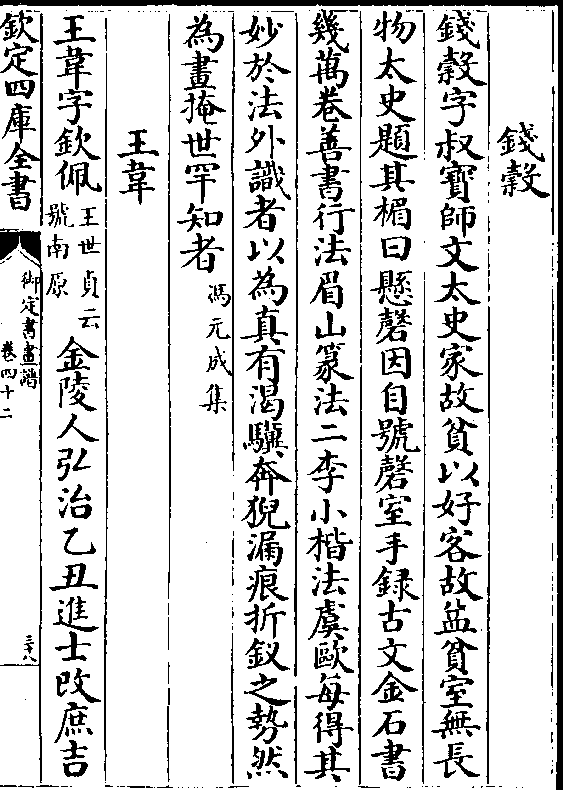 錢榖
錢榖字叔寶師文太史家故貧以好客故益貧室無長
物太史題其楣曰懸磬因自號磬室手録古文金石書
幾萬卷善書行法眉山篆法二李小楷法虞歐每得其
妙於法外識者以為真有渇驥奔猊漏痕折釵之勢然
為畫掩世罕知者馮元成集
王韋
王韋字欽佩王世貞云號南原金陵人弘治乙丑進士改庶吉
欽定四庫全書
御定書畫譜
卷四十二
三十八